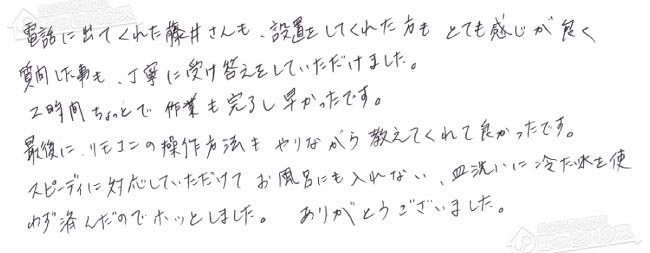 電話に出てくれた藤井さんも、設置をしてくれた方も とても感じが良く
質問した事も、丁寧に受け答えをしていただけました。
2時間ちょっとで 作業も完了し早かったです。
最後に、リモコンの操作方法も やりながら 教えてくれて良かったです。
スピーディに対応していただけて お風呂にも入れない、皿洗いに冷たい水を使
わず済んだのでホッとしました。 ありがとうございました。